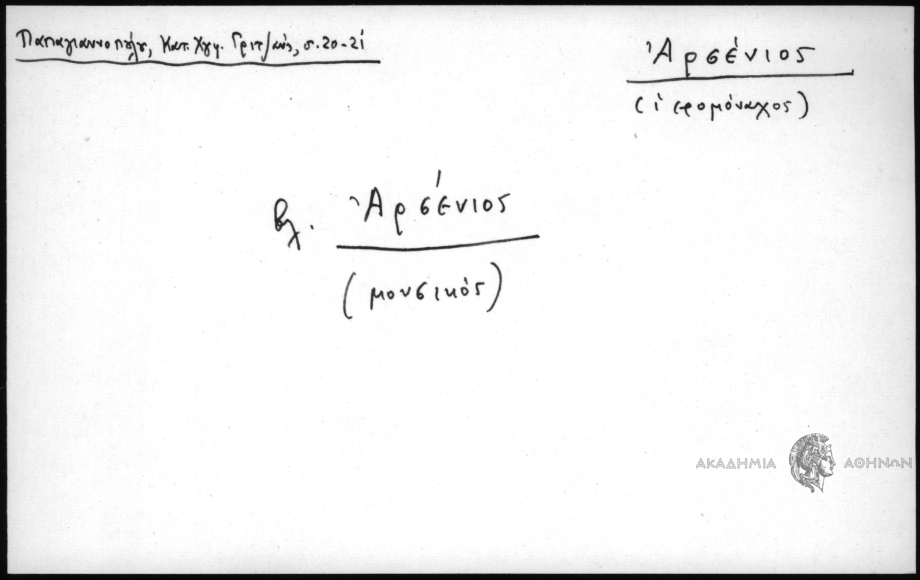 Παπαγιαννοπούλου, Κατ. Χγφ. Γριτζάνη, σ. 20-21
Ἀρσένιος
(ἱερομόναχος)
βλ. Ἀρσένιος
(μουσικός)
ΑΚΑΔΗΜΙΑ ΑΘΗΝΩΝ